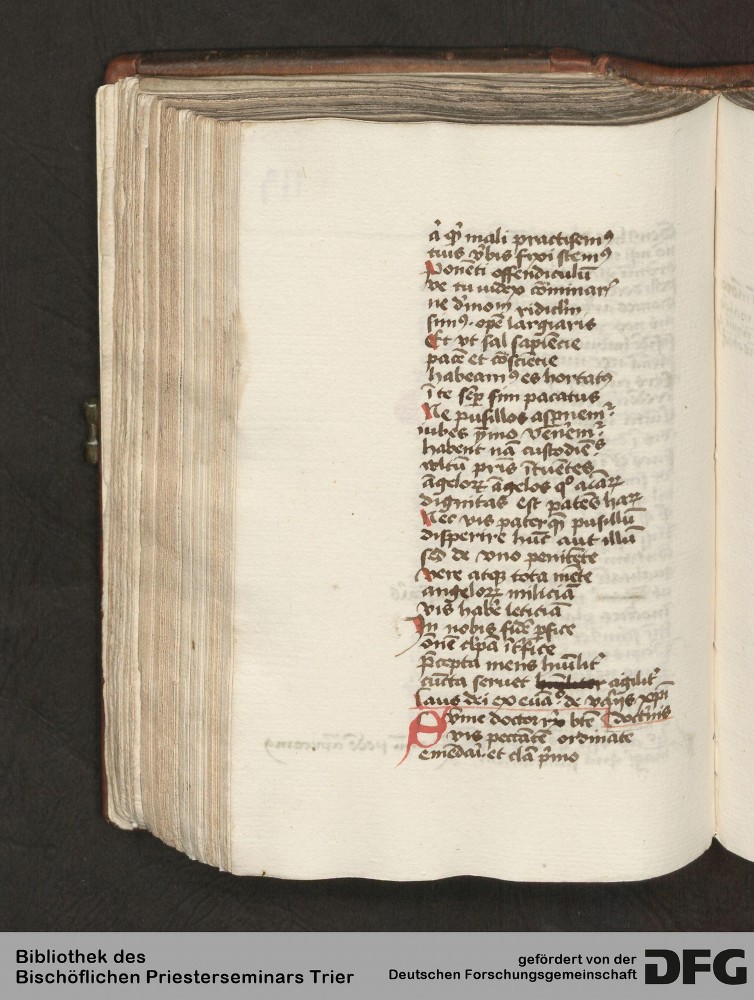 a qᵃ mali practisemꝰ
tuis v̾bis fruistemꝰ
Ponēti offendiculū
ve tu iudex cōminar᷑
ne
simꝰ opē largiaris
Et vt sal sapiēcie
pacē et cōsciēcie
habeamꝰ es hortatꝰ
ī te semꝑ sim pacatus
Ne pusillos aspnem᷑
iubes ymo venem᷑
habent nā custodiēs
vltū pris ītuētes
āgeloꝝ āgelos qᵒ
dignitas est patēs haꝝ
Nec vis paterqꝫ pusillū
dispertire hūc aut illū
sed de vno penitēte
vere atqꝫ tota mēte
angeloꝝ miliciā
vis habe leticiā
In nobis fidē ꝑfice
ōnē clpā īt̾fice
p̄cepta mens hūilit̾
cūcta seruet agilit̾
Laus dei ex euāᵒ de xp̄i
doctrinis
Sūme doctor rex btē
vis peccātē ordinate
emēdari et clā pͥmo
Bibliothek des
Bischöflichen Priesterseminars Trier
gefördert von der
Deutschen Forschungsgemeinschaft
DFG